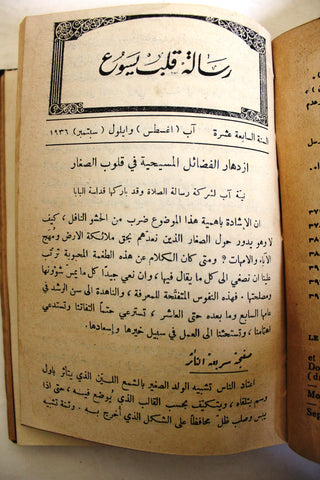 رسالة قلب يسوع
السنة السابعة عشرة آب (اغسطس) وايلول (سبتمبر) ١٩٣٦
ازدهار الفضائل المسيحية في قلوب الصغار
نية آب لشركة رسالة الصلاة وقد باركها قداسة البابا
ان الاشادة باهمية هذا الموضوع ضرب من الحشو النافل، كيف
لا وهو يدور حول الصغار الذين نعدهم بحق ملائكة الارض ومُهج
الآباء والامهات ? ومتى كان الكلام عن هذه الطغمة المحبوبة ترتّب
علينا ان نصغي الى كل ما يقال فيها، وان نعي جيدًا كل ما يمس شؤونها
ومصلحتها، فهذه النفوس المتفتّحة للمعرفة، والناهدة الى سن الرشد في
عامها السابع وما بعده حتى العاشر، تسترعي حتمًا التفاتنا وتستدعي
اهتمامنا، وتستحثنا الى العمل في سبيل خيرها وإسعادها.
صفحة سريعة التأثر
اعتاد الناس تشبيه الولد الصغير بالشمع الليّن الذي يتأثر باول
وسم يتلقاه، ويتكيّف بحسب القالب الذي يوضع فيه، حتى اذا
يبس وصلب ظلّ محافظًا على الشكل الذي أُخرج به. وثمة تشبيه
٣٧
٣٧
٣٨
٣٨
٣٩
LE
Do
Mo
Sep